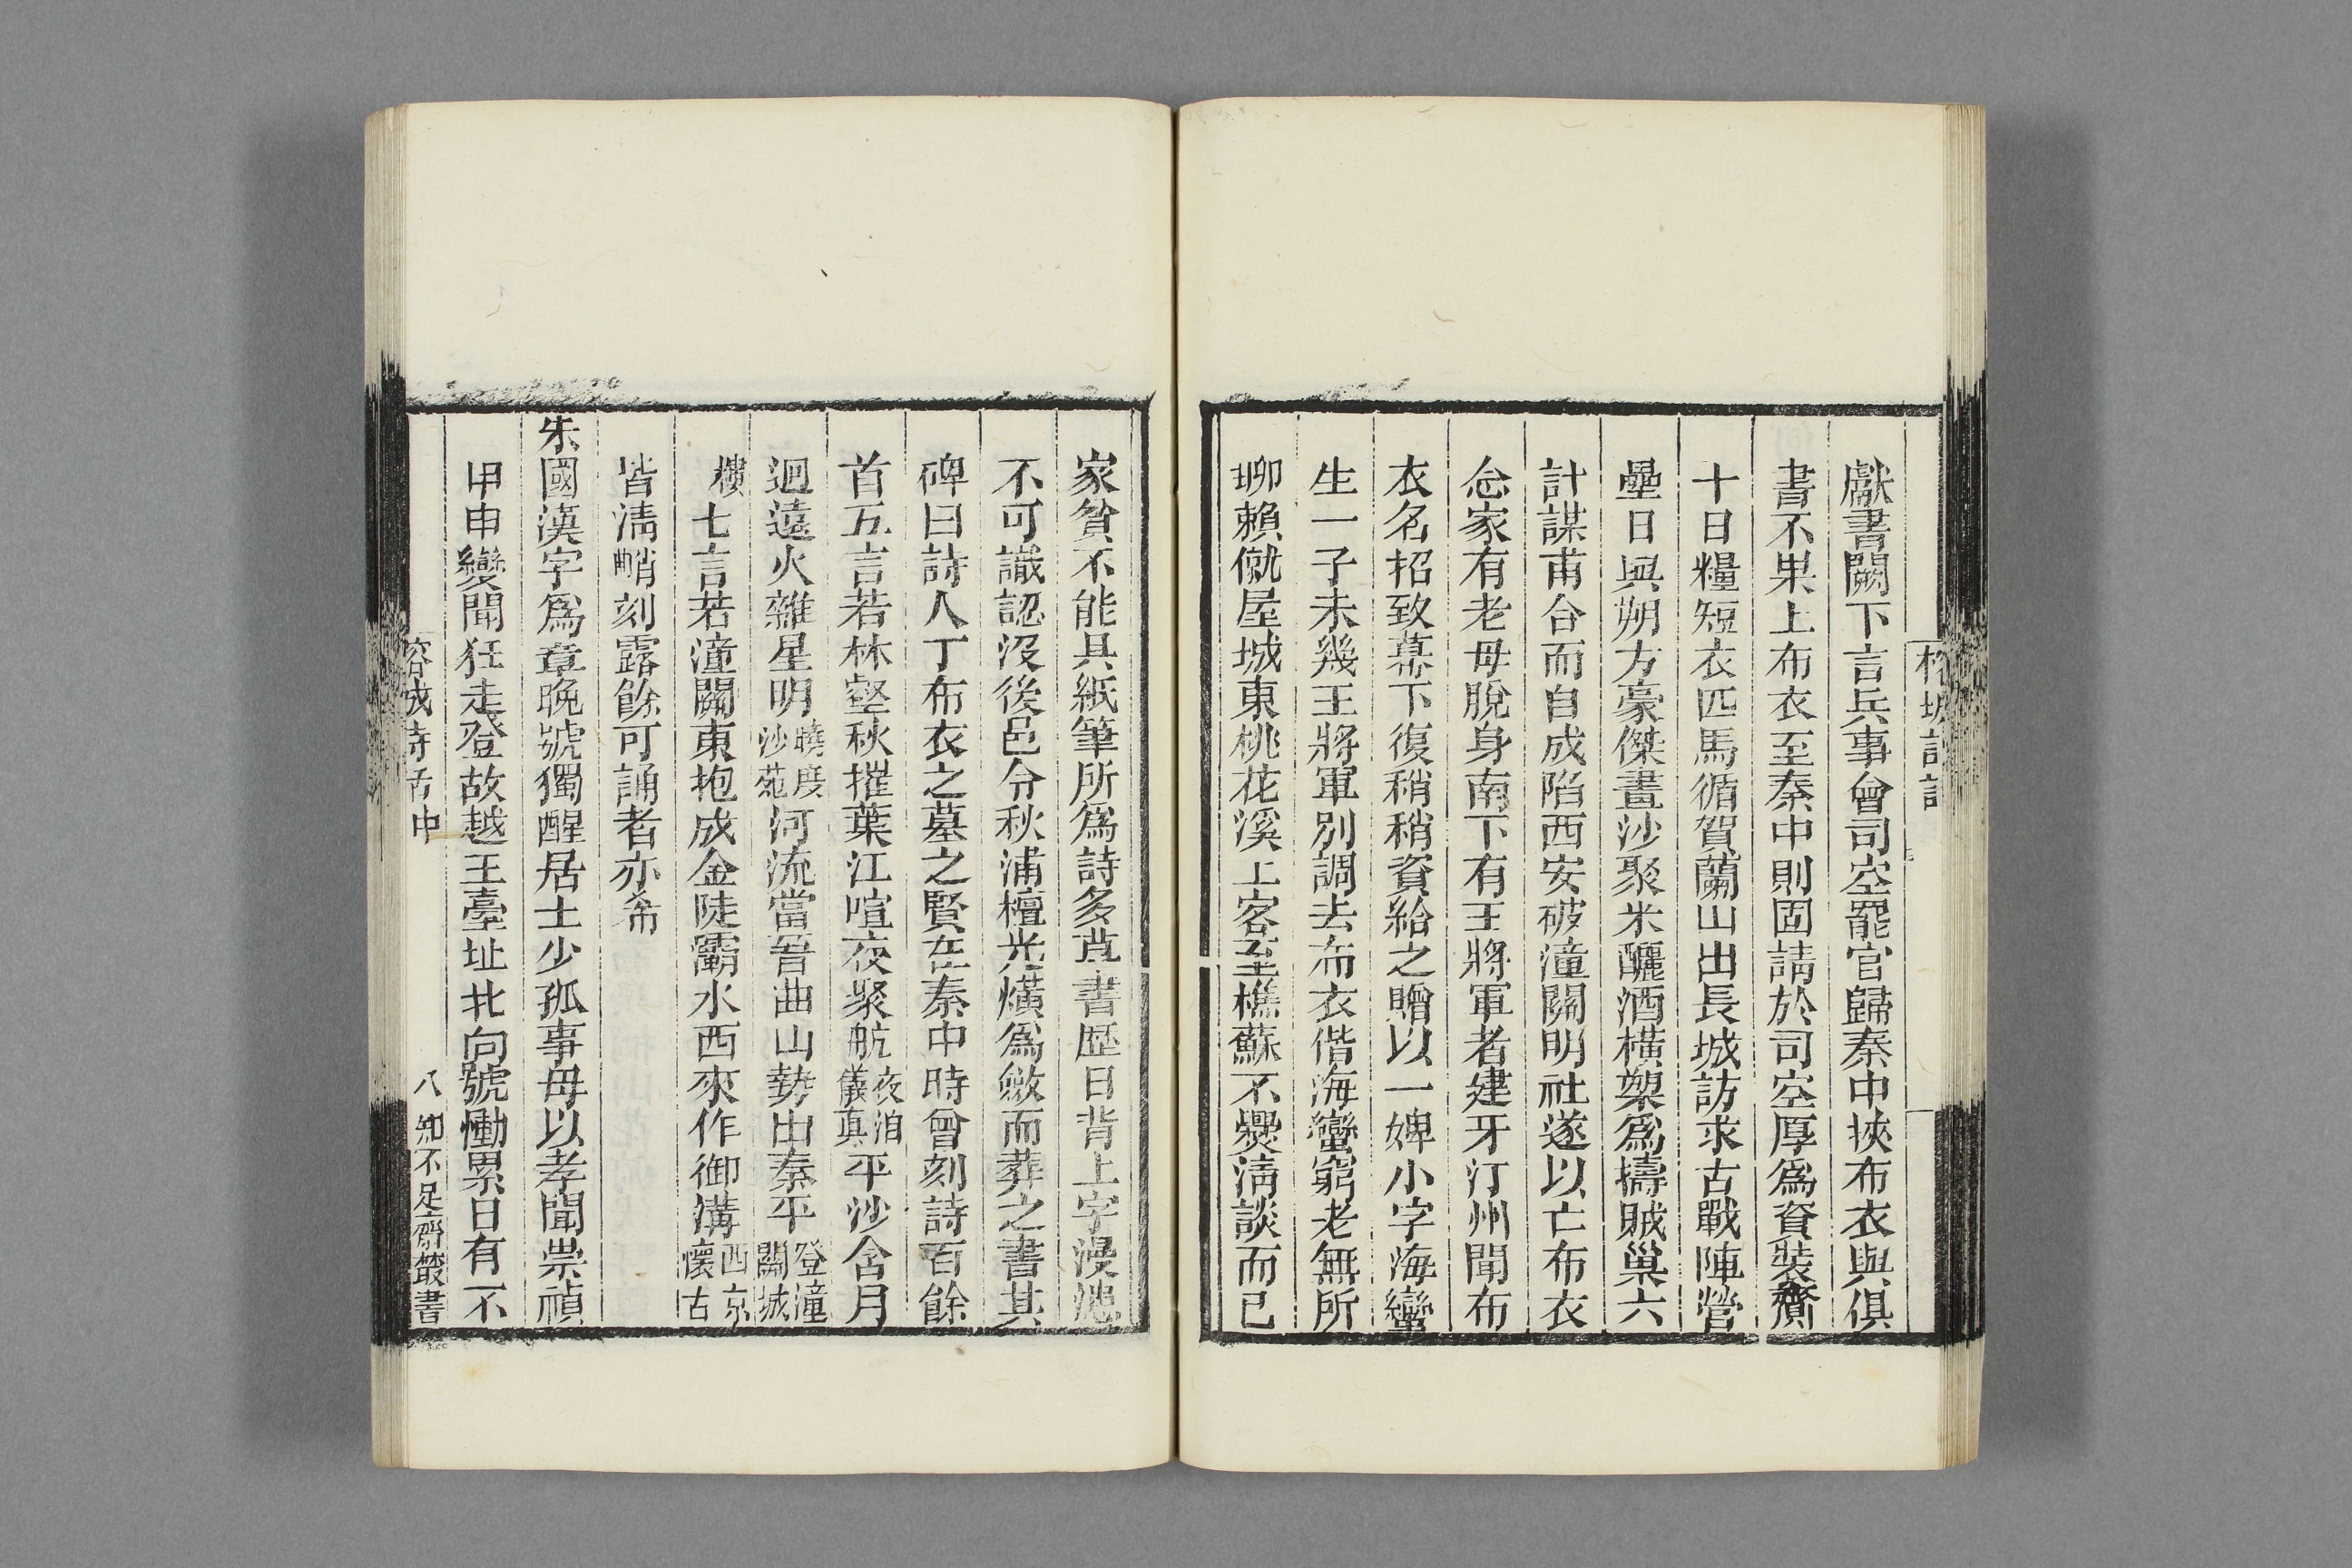 獻書闕下言兵事會司空罷官歸秦中挾布衣與俱
書不果上布衣至秦中則固請於司空厚爲資裝齎
十日糧短衣匹馬循賀蘭山出長城訪求古戰陣營
壘日與朔方豪傑畫沙聚米釃酒橫槊爲擣賊巢六
計謀甫合而自成陷西安破潼關明社遂以亡布衣
念家有老母脫身南下有王將軍者建牙汀州聞布
衣名招致幕下復稍稍資給之贈以一婢小字海蠻
生一子未幾王將軍別調去布衣偕海蠻窮老無所
聊賴僦屋城東桃花溪上客至樵蘇不爨淸談而已
家貧不能具紙筆所爲詩多草書歷日背上字漫漶
不可識認沒後邑令秋浦檀光熿爲斂而葬之書其
碑曰詩人丁布衣之墓之賢在秦中時曾刻詩百餘
首五言若林壑秋摧葉江喧夜聚航夜泊儀真平沙含月
迴遠火雜星明曉度沙苑河流當晉曲山勢出秦平登潼關城
樓七言若潼關東抱成金陡灞水西來作御溝西京懷古
皆淸峭刻露餘可誦者亦希
朱國漢字爲章晚號獨醒居士少孤事母以孝聞崇禎
甲申變聞狂走登故越王臺址北向號慟累日有不
榕城詩話中
八 知不足齋叢書